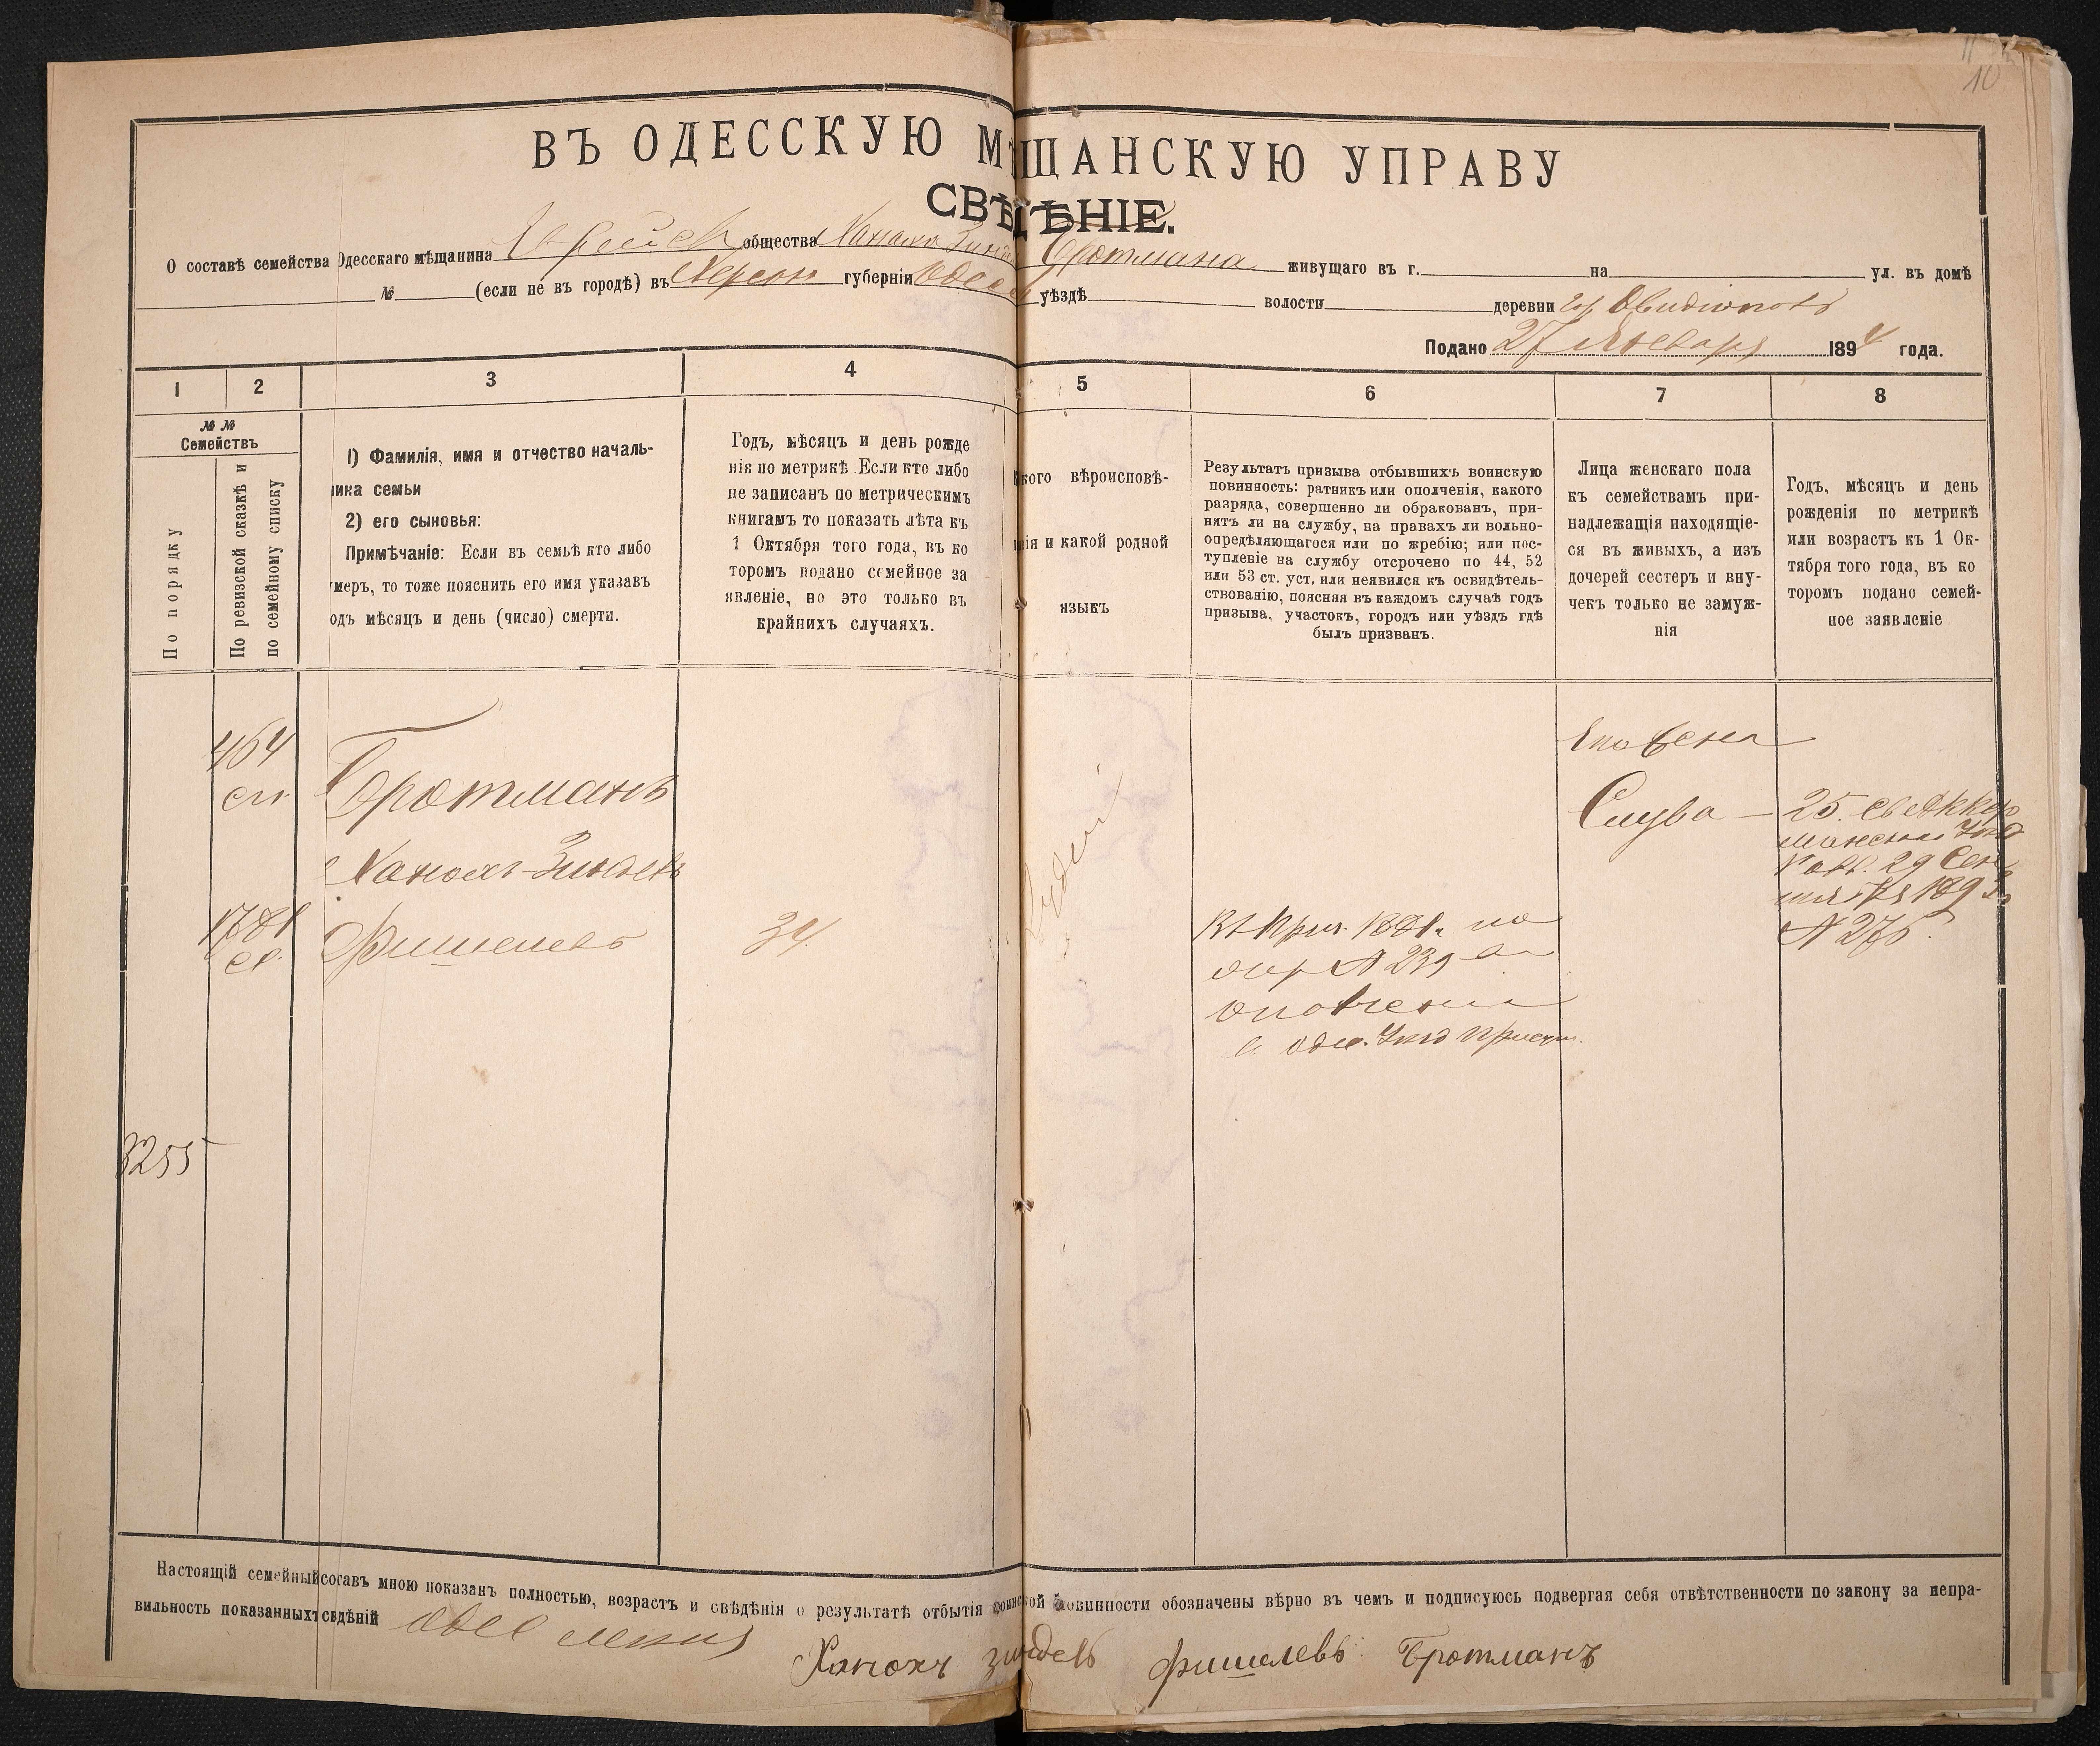 10
ВЪ ОДЕССКУЮ МѢЩАНСКУЮ УПРАВУ
СВѢДѢНІЕ.
О составѣ семейства Одесскаго мѣщанина Еврейск общества Ханоха Зинделя Бротмана живущаго въ г. на ул. въ домѣ
№ (если не въ городѣ) въ Херсон губерніи Одесс уѣздѣ волости деревни гор Овидіополь
Подано 27 Января 1894 года.
1 2 3 4 5 6 7 8
№ №
Семействъ
По порядку
По ревизской сказкѣ и
по семейному списку
1) Фамилія, имя и отчество началь-
ника семьи
2) его сыновья:
Примѣчаніе: Если въ семьѣ кто либо
умеръ, то тоже пояснить его имя указавъ
годъ мѣсяцъ и день (число) смерти.
Годъ, мѣсяцъ и день рожде
нія по метрикѣ. Если кто либо
не записанъ по метрическимъ
книгамъ то показать лѣта къ
1 Октября того года, въ ко
торомъ подано семейное за
явленіе, но это только въ
крайнихъ случаяхъ.
кого вѣроисповѣ-
нія и какой родной
языкъ
Результатъ призыва отбывшихъ воинскую
повинность: ратникъ или ополченія, какого
разряда, совершенно ли обракованъ, при-
нятъ ли на службу, на правахъ ли вольно-
опредѣляющагося или по жребію; или пос-
тупленіе на службу отсрочено по 44, 52
или 53 ст. уст. или неявился къ освидѣтель-
ствованію, поясняя въ каждомъ случаѣ годъ
призыва, участокъ, городъ или уѣздъ гдѣ
былъ призванъ.
Лица женскаго пола
къ семействамъ при-
надлежащія находящіе-
ся въ живыхъ, а изъ
дочерей сестеръ и вну-
чекъ только не замуж-
нія
Годъ, мѣсяцъ и день
рожденія по метрикѣ
или возрастъ къ 1 Ок-
тября того года, въ ко
торомъ подано семей-
ное заявленіе
464
сп
Бротманъ
Ханохъ-Зиндель
1781
Фишелевъ
34.
Іудей
Въ Приз. 1881 г. по
жер № 239 въ
ополчении
в Одес. Уѣзд Присут.
Его Жена
Слува — 25. Св Аккер
манскаго Уѣзд
Рав. 29 Сен
тября 1893
№ 276.
3255
Настоящій семейный составъ мною показанъ полностью, возрастъ и свѣдѣнія о результатѣ отбытія воинской повинности обозначены вѣрно въ чемъ и подписуюсь подвергая себя отвѣтственности по закону за непра-
вильность показанныхъ свѣдѣній Одес мещан
Ханохъ Зиндель Фишелевъ Бротманъ